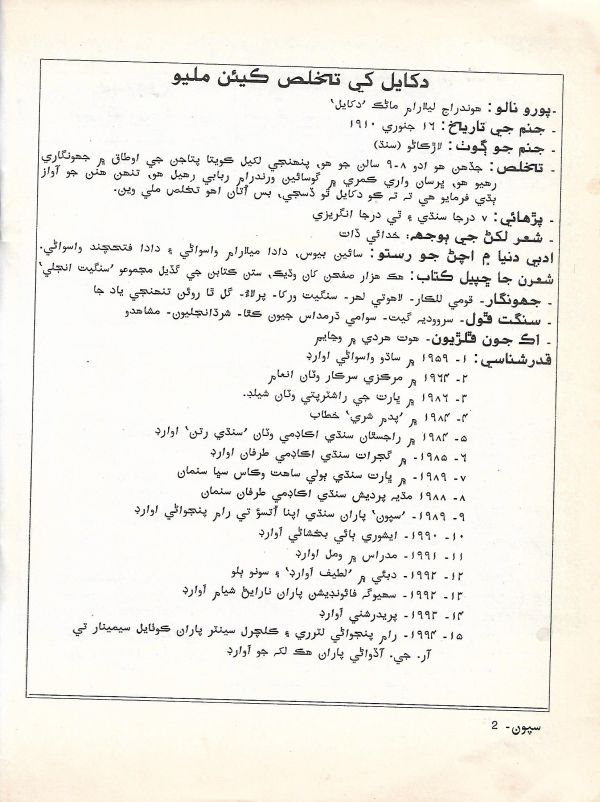 دکايل کي تخلص ڪيئن مليو
-پورو نالو: هوندراج ليلارام ماڻڪ ’دکايل‘
- جنم جي تاريخ: ١٦ جنوري ١٩١٠
- جنم جو ڳوٺ: لاڙڪاڻو (سنڌ)
- تخلص: جڏهن هو ادو ٨-٩ سالن جو هو، پنهنجي لکيل ڪويتا پتاجن جي اوطاق ۾ جهونگاري
رهيو هو، پرسان واري ڪمري ۾ گوسائين ورندرام ربابي رهيل هو، تنهن هنن جو آواز
ٻڌي فرمايو هي ته تہ ڪو دکايل ٿو ڏسجي، بس اُتان اهو تخلص ملي وين.
- پڙهائي: ٧ درجا سنڌي ۽ ٽي درجا انگريزي
- شعر لکڻ جي ٻوجهہ: خدائي ڏات
ادبي دنيا ۾ اچڻ جو رستو: سائين بيوس، دادا ميلارام واسواڻي ۽ دادا فتحچند واسواڻي.
شعرن جا ڇپيل ڪتاب: هڪ هزار صفحن کان وڌيڪ، ستن ڪتابن جي گڏيل مجموعو ’سنگيت انجلي‘
- جهونگار- قومي للڪار- لاهوتي لهر- سنگيت ورکا- پرلاءُ- گل ٿا روئن تنهنجي ياد جا
- سنگت ڦول- سروديہ گيت- سوامي ڌرمداس جيون ڪٿا- شرڌانجليون- مشاهدو
- اڪ جون ڦلڙيون- هوت هردي ۾ وڃايم
قدرشناسي: ١- ١٩٥٩ ۾ ساڌو واسواڻي اوارڊ
٢- ١٩٦٤ ۾ مرڪزي سرڪار وٽان انعام
٣- ١٩٨٦ ۾ ڀارت جي راشٽرپتي وٽان شيلڊ.
٤- ١٩٨٤ ۾ ’پدم شري‘ خطاب
٥- ١٩٨٤ ۾ راجسٿان سنڌي اڪاڊمي وٽان ’سنڌي رتن‘ اوارڊ
٦- ١٩٨٥- ۾ گجرات سنڌي اڪاڊمي طرفان اوارڊ
٧- ١٩٨٩- ۾ ڀارت سنڌي ٻولي ساهت وڪاس سڀا سنمان
٨- ١٩٨٨ مڌيہ پرديش سنڌي اڪاڊمي طرفان سنمان
٩- ١٩٨٩- ’سپون‘ پاران سنڌي اپنا اُتسوَ تي رام پنجواڻي اوارڊ
١٠- ١٩٩٠- ايشوري ٻائي بخشاڻي آوارڊ
١١- ١٩٩١- مدراس ۾ ومل اوارڊ
١٢- ١٩٩٢- دبئي ۾ ’لطيف آوارڊ‘ ۽ سونو ٻلو
١٣- ١٩٩٢- سهيوگ فائونڊيشن پاران نارايڻ شيام اوارڊ
١٤- ١٩٩٣- پريدرشني آوارڊ
١٥- ١٩٩٤- رام پنجواڻي لٽرري ۽ ڪلچرل سينٽر پاران ڪوٺايل سيمينار تي
آر. جي. آڏواڻي پاران هڪ لک جو آوارڊ
سپون- 2